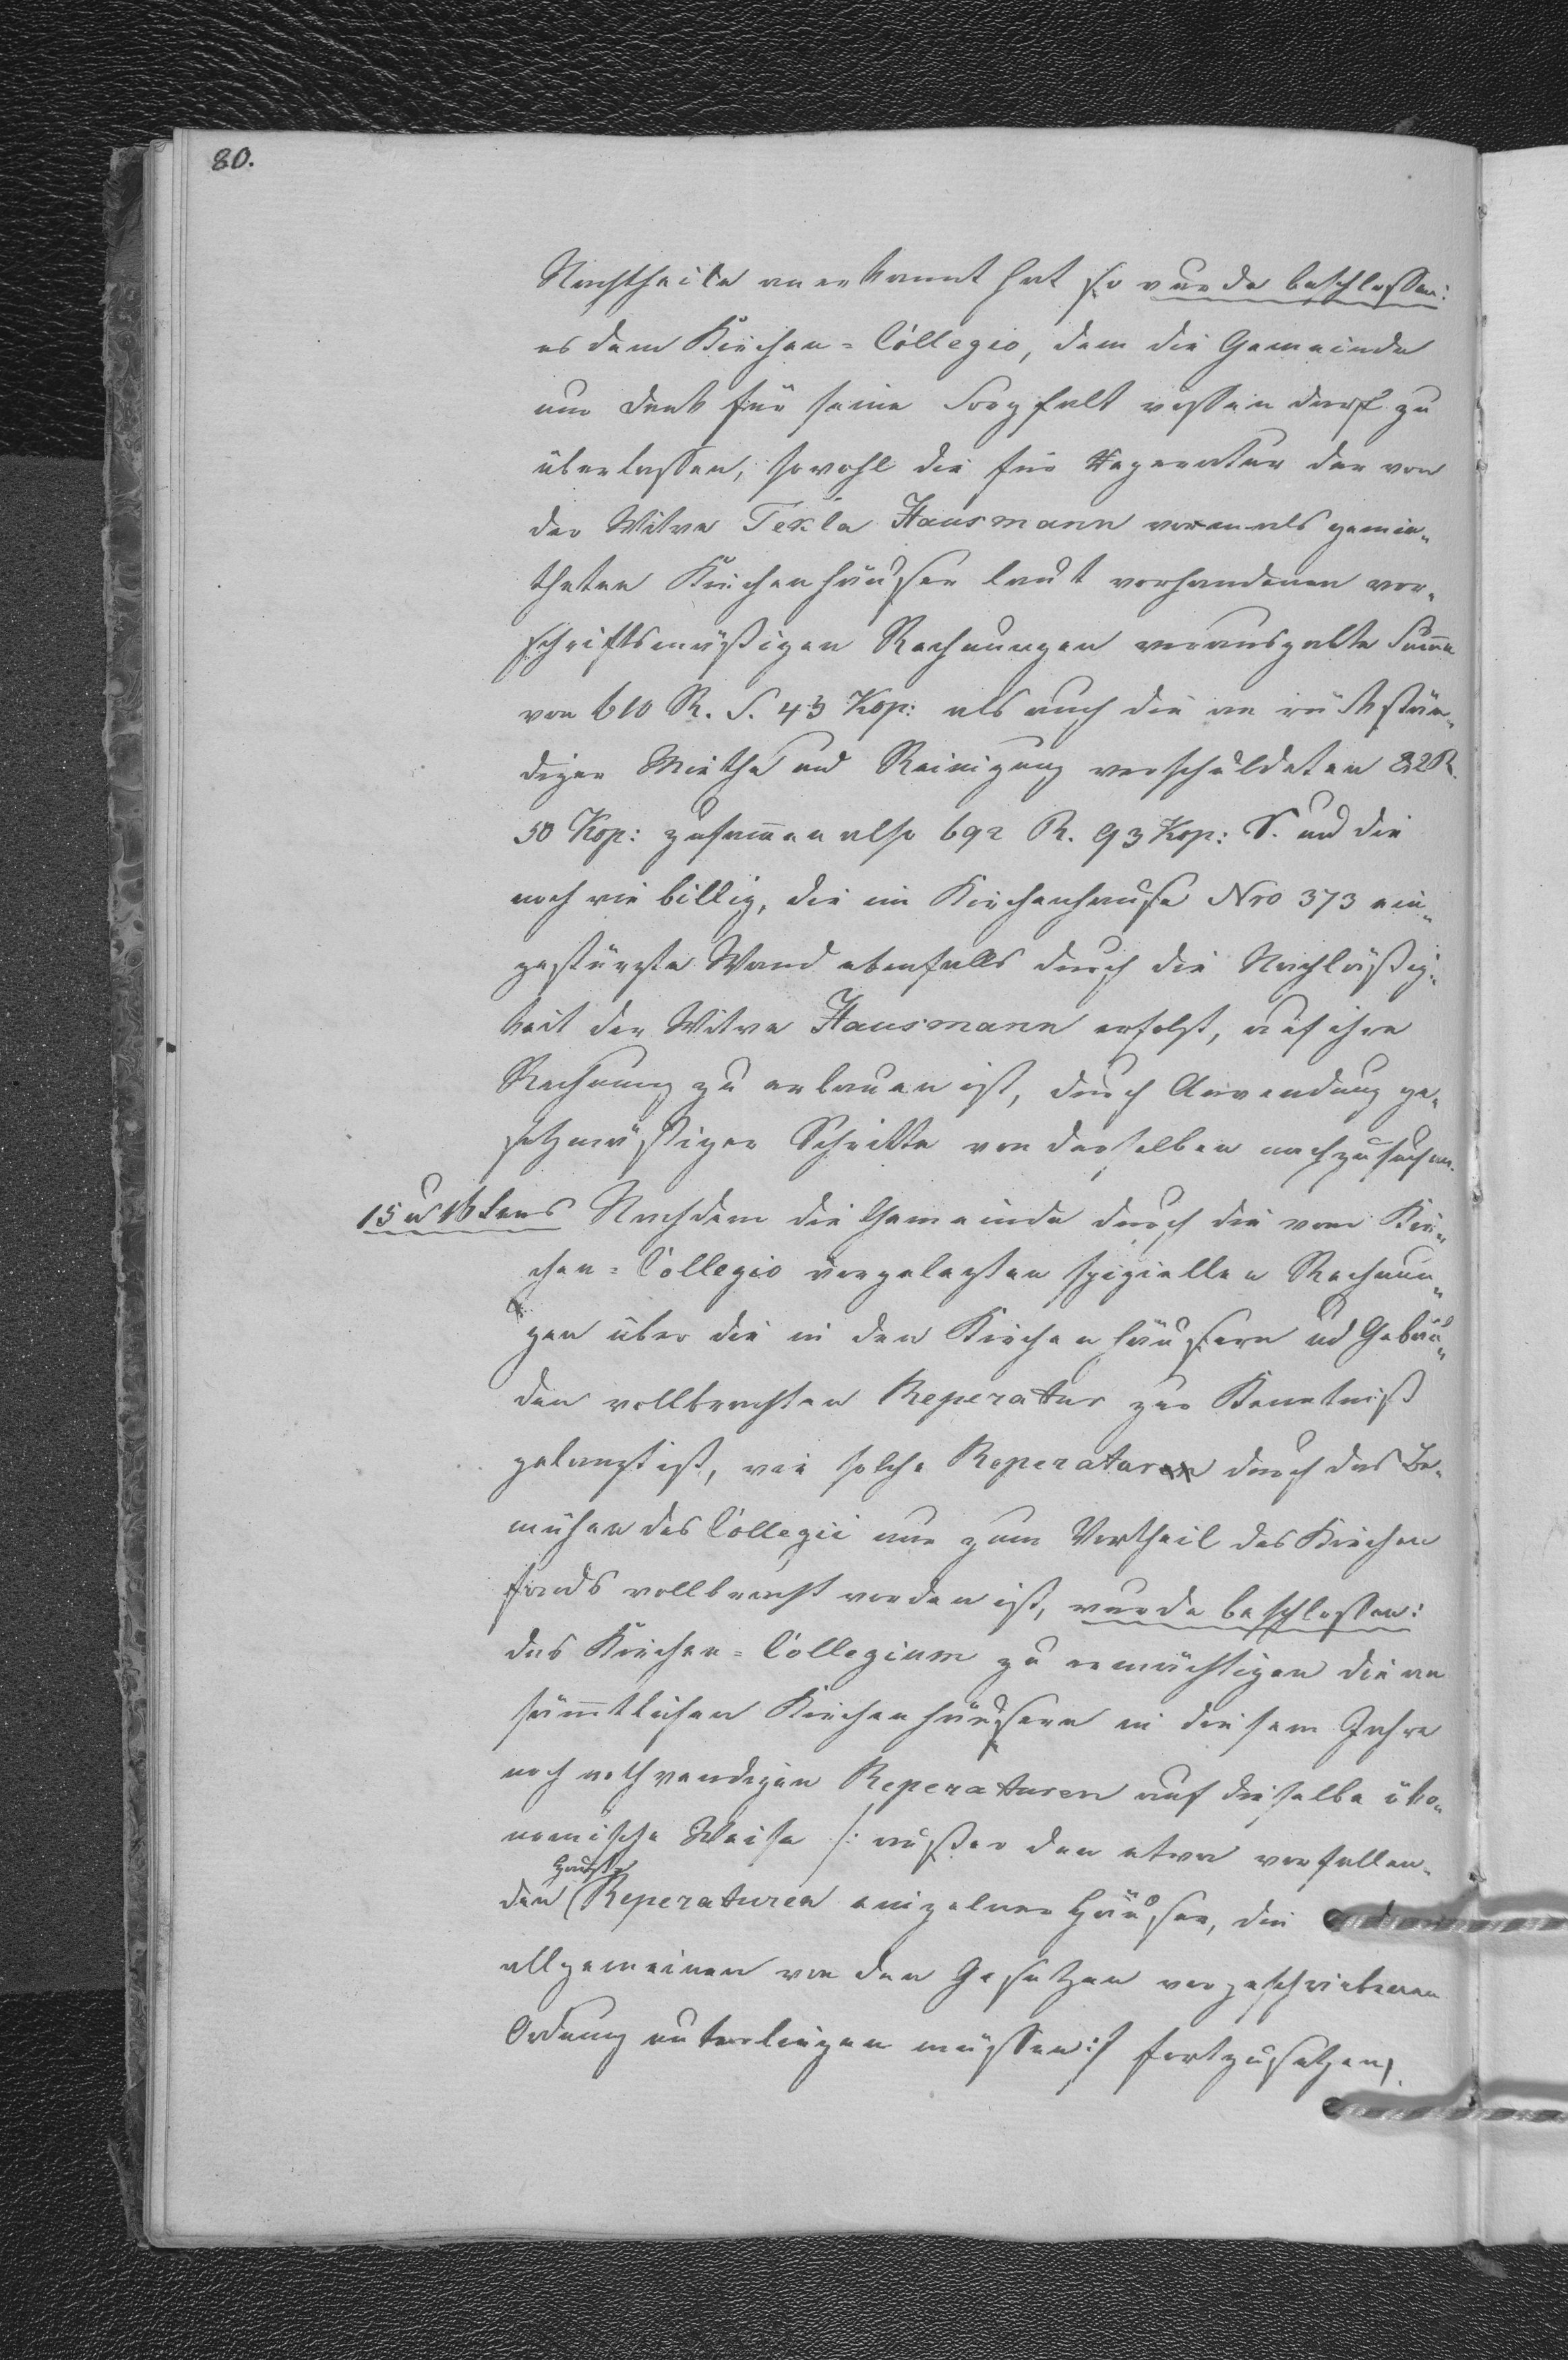 80.
Nachtheile anerkannt hat so wurde beschlossen:
es dem Kirchen-Collegio, dem die Gemeinde
nur Dank für seine Sorgfalt wissen darf zu
überlassen, sowohl die für Reperatur der von
der Witwe Tekla Hausmann vormals gemie-
theten Kirchenhäuser laut vorhandenen vor-
schriftsmäßigen Rechnungen verausgabte Summe
von 610 R. S. 43 Kop: als auch die an rückstän-
diger Miethe und Reinigung verschuldeten 82 R.
50 Kop: zusammen also 692 R. 93 Kop: S. und die
noch wie billig, die im Kirchenhause Nro 373 ein-
gestürzte Wand ebenfalls durch die Nachläßig-
keit der Witwe Hausmann erfolgt, auf ihre
Rechnung zu erbauen ist, durch Anwendung ge-
setzmäßiger Schritte von derselben nachzusuchen.
15 u 16tens Nachdem die Gemeinde durch die vom Kir-
chen-Collegio vorgelegten spiziellen Rechnun-
gen über die in den Kirchenhäusern und Gebäu-
den vollbrachten Reperatur zur Kenntniß
gelangt ist, wie solche Reperatur durch das Be-
mühen des Collegii nur zum Vortheil des Kirchen
fonds vollbracht worden ist, wurde beschlossen:
das Kirchen-Collegium zu ermächtigen die an
sämmtlichen Kirchenhäusern in diesem Jahre
noch nothwendigen Reperaturen auf dieselbe öko-
nomische Weise /: außer den etwa vorfallen-
den Haupt Reperaturen einzelner Häuser, die der
allgemeinen von den Gesetzen vorgeschriebenen
Ordnung unterliegen müssen :/ fortzusetzen,